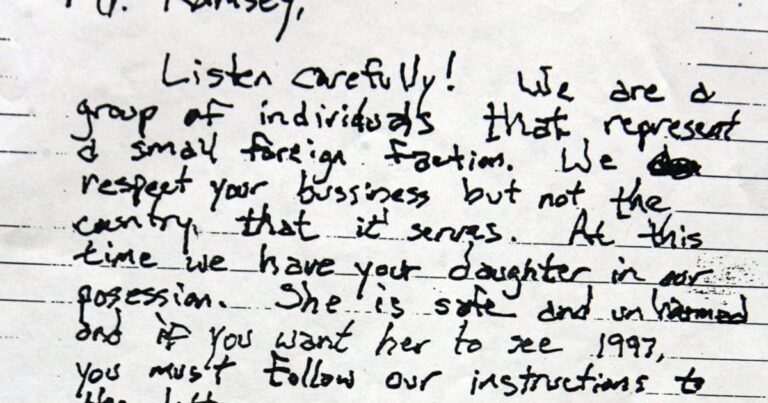 Mr. Ramsey,
Listen carefully! We are a
group of individuals that represent
a small foreign faction. We
respect your bussiness but not the
country that it serves. At this
time we have your daughter in our
posession. She is safe and unharmed
and if you want her to see 1997,
you must follow our instructions to
the letter